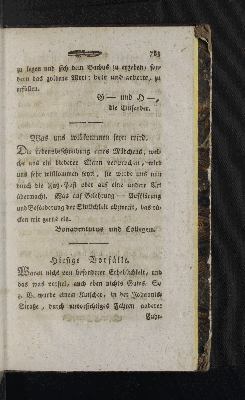 783
zu legen und sich dem Bachus zu ergeben; son-
dern das goldene Wort: bete und arbeite, zu
erfüllen.
G — und H —,
die Einsender.
Was uns willkommen seyn wird.
Die Lebensbeschreibung eines Mädchens, wel-
che uns ein biederer Mann versprochen, wird
uns sehr willkommen seyn, sie werde uns nun
durch die Fuß-Post oder auf eine andere Art
übermacht. Was auf Belehrung — Aufklärung
und Beförderung der Sittlichkeit abzweckt, das rü-
cken wir gerne ein.
Bonaventutus und Collegen.
Hiesige Vorfälle.
Waren nicht von besonderer Erheblichkeit, und
das was vorfiel, auch eben nichts Gutes. So
z. B. wurde einem Kutscher, in der Johannis-
Straße, durch unvorsichtiges Fahren anderer
Fuhr-